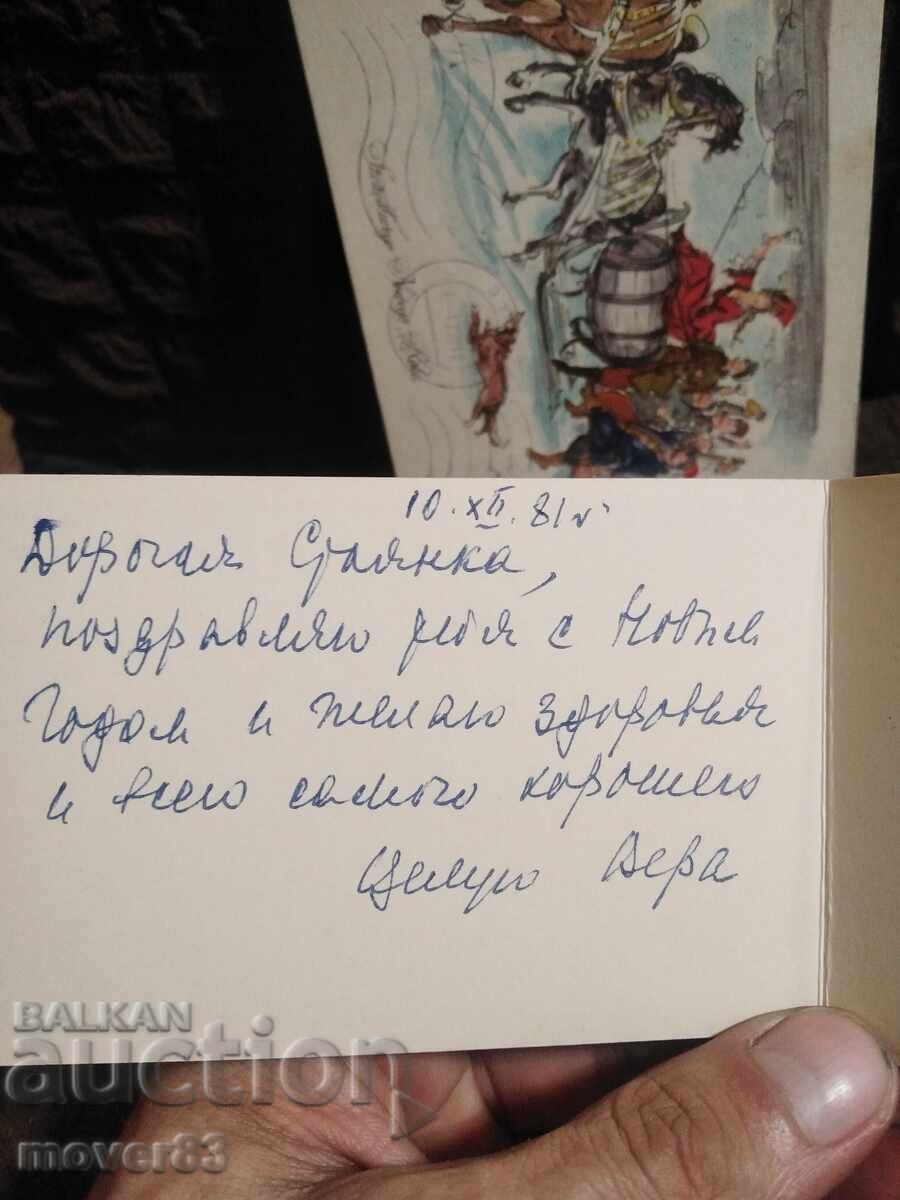 10.XII.81г
Дорогая Стоянка,
поздравляю тебя с Новым
Годом и желаю здоровья
и всего самого хорошего
Целую Вера
BALKAN
auction
mover83